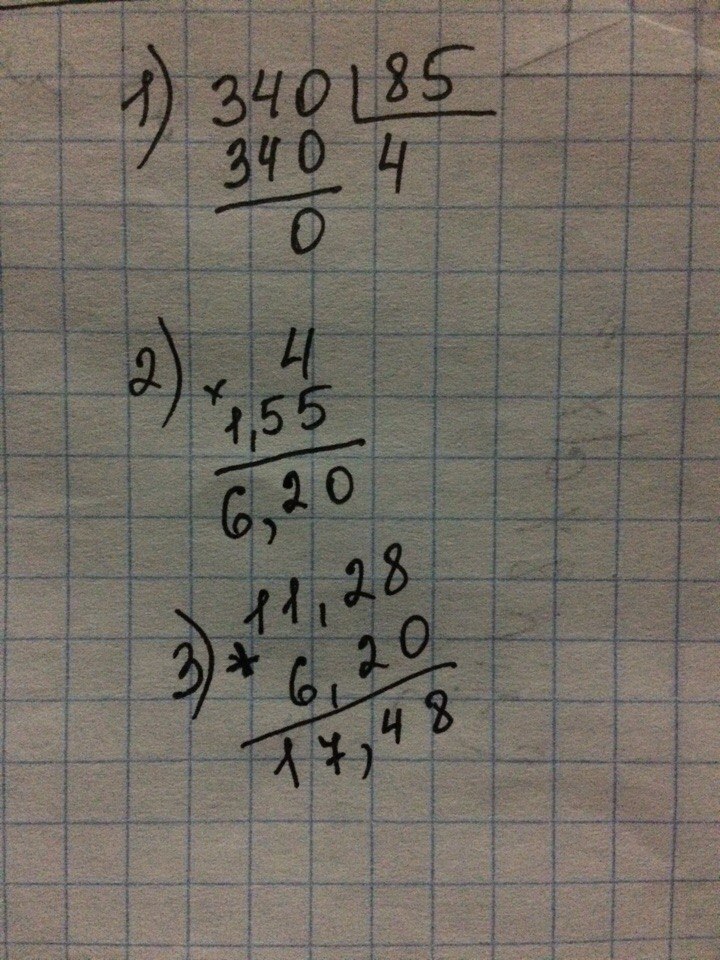 1) 340 85
340 4
0
2) 4
× 1,55
6,20
11,28
3) * 6,20
17,48